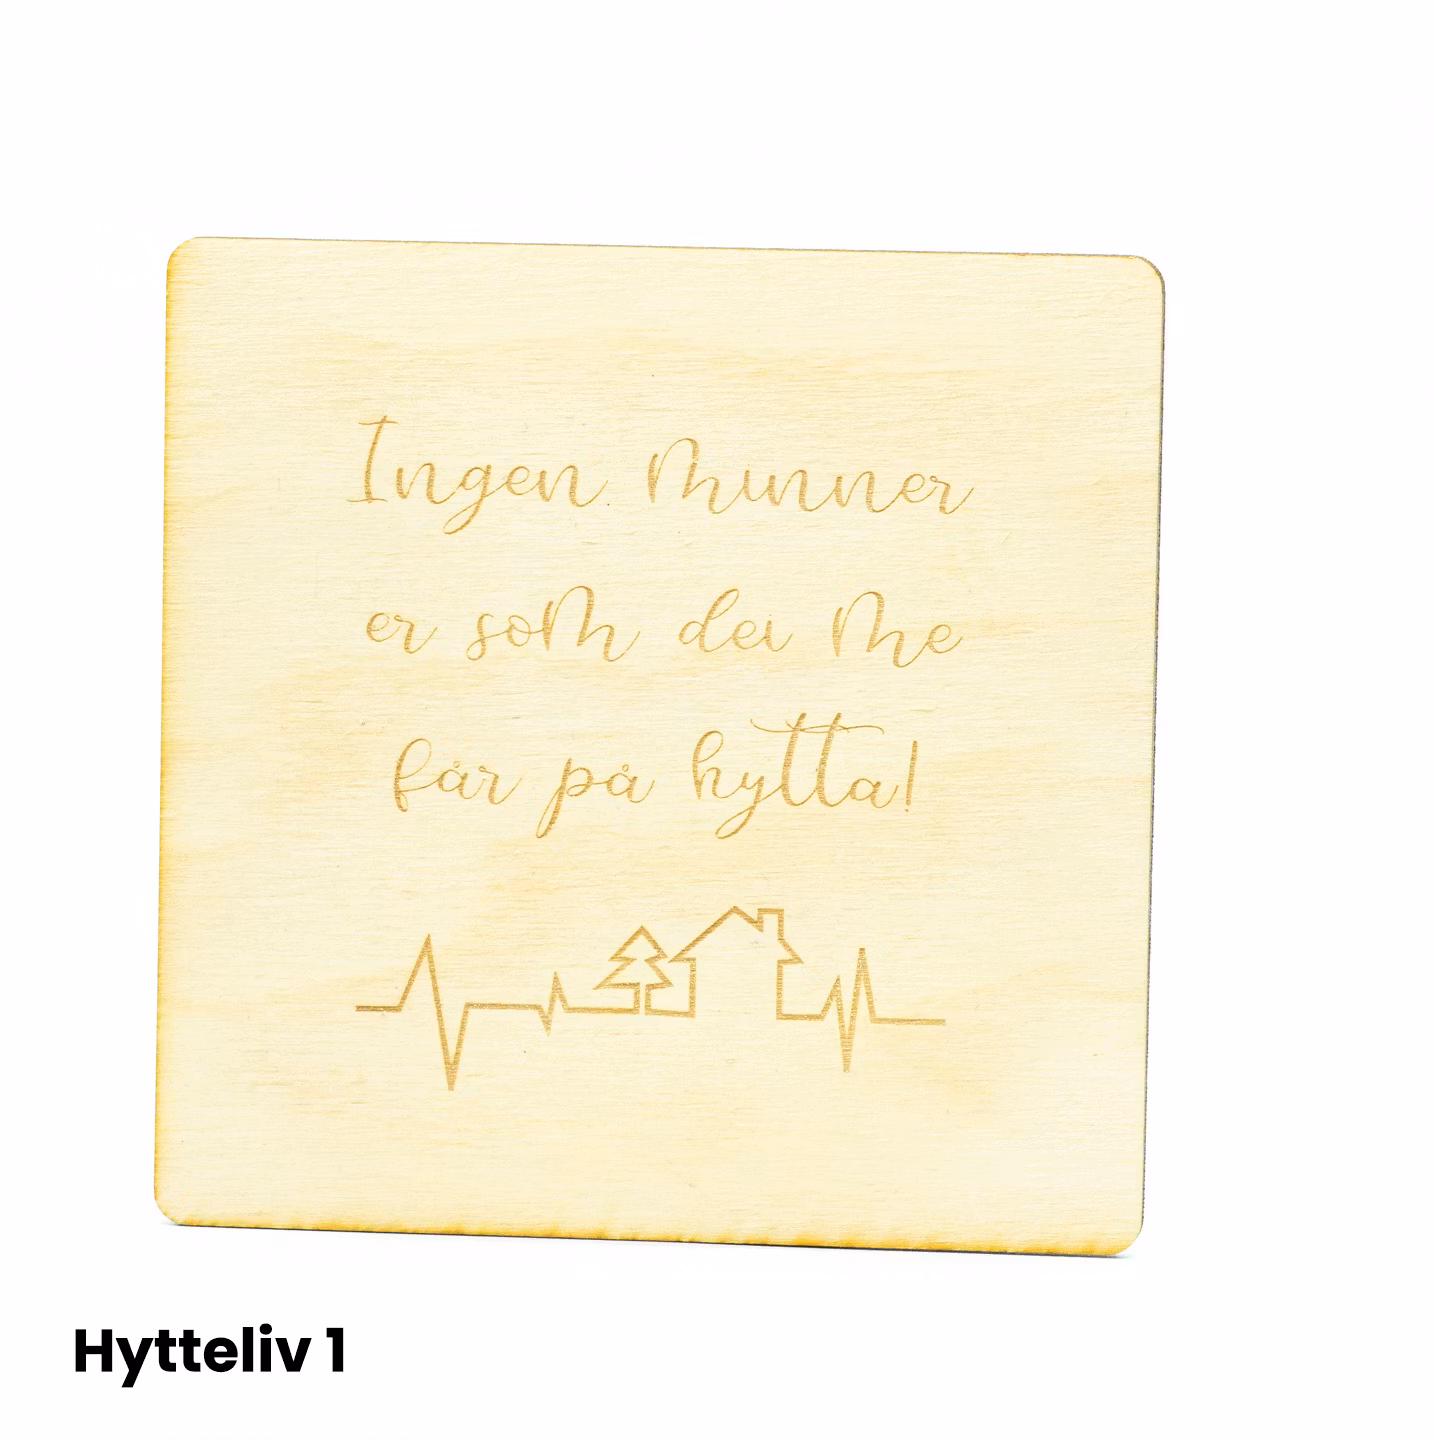 Ingen minner
er som dei me
får på hytta!
Hytteliv 1